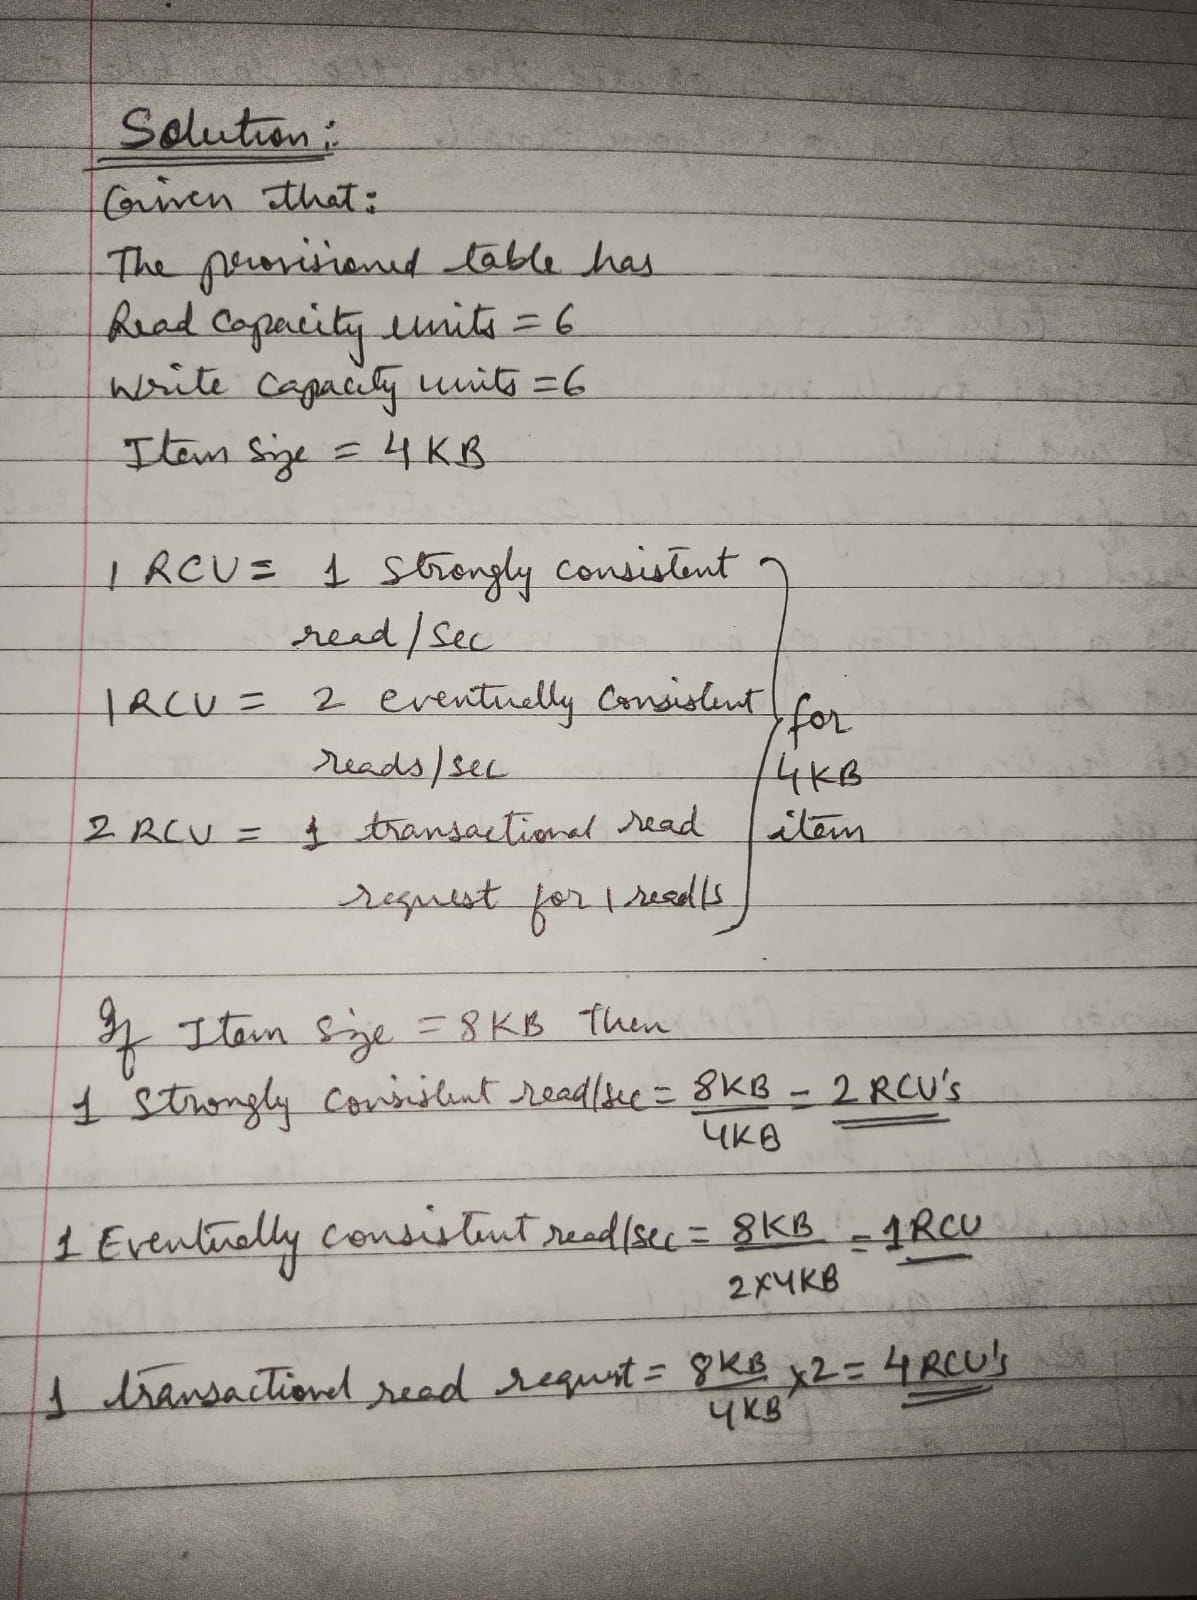 Solution:
Given that:
The provisioned table has
Read Capacity units = 6
Write Capacity units = 6
Item Size = 4 KB
1 RCU = 1 Strongly consistent
read / Sec
1 RCU = 2 eventually Consistent
reads / sec
2 RCU = 1 transactional read
request for 1 read/s
for
4KB
item
If Item Size = 8KB Then
1 Strongly Consistent read/sec = 8KB = 2 RCU's
4KB
1 Eventually consistent read/sec = 8KB = 1 RCU
2x4KB
1 transactional read request = 8KB x2 = 4 RCU's
4KB